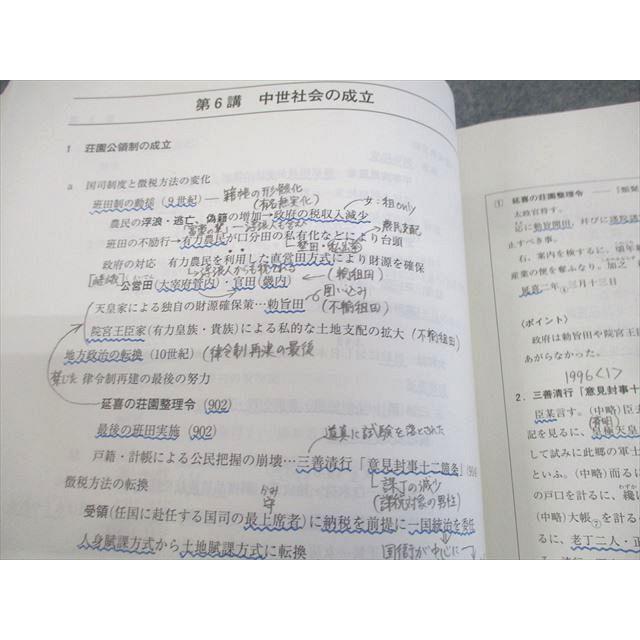 第6講 中世社会の成立
1 荘園公領制の成立
a 国司制度と徴税方法の変化
班田制の動揺(9世紀) ─ 籍帳の形骸化
(有名無実化)
女・祖only
農民の浮浪・逃亡、偽籍の増加→政府の税収入減少
農民支配
班田の不励行→有力農民が口分田の私有化などにより台頭
政府の対応 有力農民を利用した直営田方式により財源を確保
公営田(大宰府管内)・官田(畿内)
(輸租田)
囲い込み
天皇家による独自の財源確保策…勅旨田
(不輸租田)
院宮王臣家(有力皇族・貴族)による私的な土地支配の拡大(不輸租田)
地方政治の転換(10世紀)(律令制再建の最後
律令制再建の最後の努力
延喜の荘園整理令(902)
最後の班田実施(902)
道真に試験を落とされた
戸籍・計帳による公民把握の崩壊…三善清行「意見封事十二箇条」
課丁の減少
(課税対象の男性)
徴税方法の転換
かみ
守
受領(任国に赴任する国司の最上席者)に納税を前提に一国統治を委任
人身賦課方式から土地賦課方式に転換
国衙が中心に
① 延喜の荘園整理令 ──
太政官符す。
に勅旨開田、并びに
止すべき事。
右、案内を検するに、
産業の便を奪ふなり。加之
延喜二年 三月十三日
〈ポイント〉
政府は勅旨田や院宮王
あがらなかった。
1996<1>
2. 三善清行「意見封事十
臣某言す。(中略)臣
記を見るに、皇極天皇
して試みに此郷の軍士
といふ。(中略)而るに
の戸口を計るに、纔
わずか
(中略)大帳⑦を計るに
に、老丁二人・正